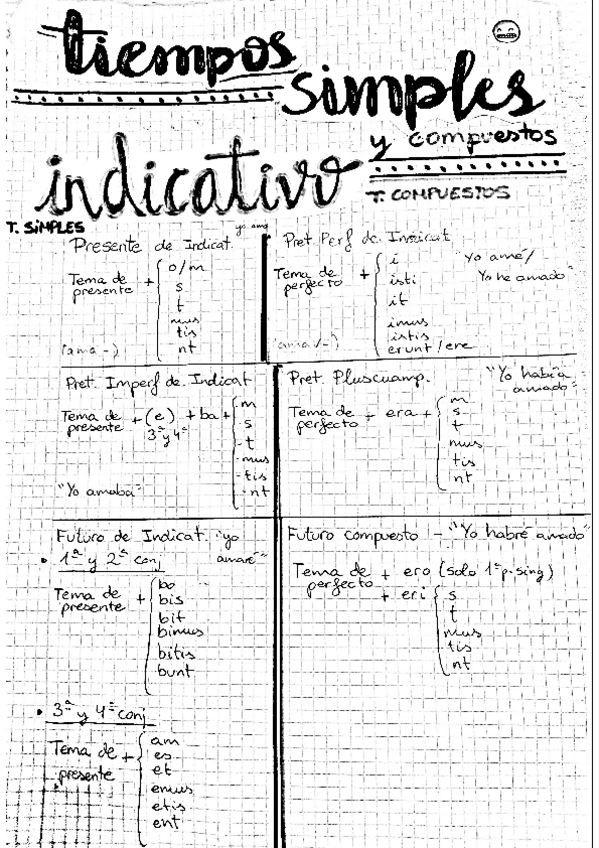 tiempos
simples
y compuestos
indicativo
T. COMPUESTOS
T. SIMPLES
yo amo
Presente de Indicat.
Tema de presente + o/m
s
t
mus
tis
nt
(ama-)
Pret. Perf de. Indicat
"Yo amé/
Yo he amado"
Tema de perfecto + i
isti
it
imus
istis
erunt/ere
(amav-)
Pret. Imperf de. Indicat
Tema de presente + (e) + ba + m
3ª y 4ª
-s
-t
-mus
-tis
-nt
"Yo amaba"
Pret. Pluscuamp.
"Yo había
amado"
Tema de perfecto + era + m
s
t
mus
tis
nt
Futuro de Indicat. "yo
amaré"
• 1ª y 2ª conj
Tema de presente + bo
bis
bit
bimus
bitis
bunt
• 3ª y 4ª conj
Tema de presente + am
es
et
emus
etis
ent
Futuro compuesto - "Yo habré amado"
Tema de perfecto + ero (solo 1ª p. sing)
+ eri s
t
mus
tis
nt